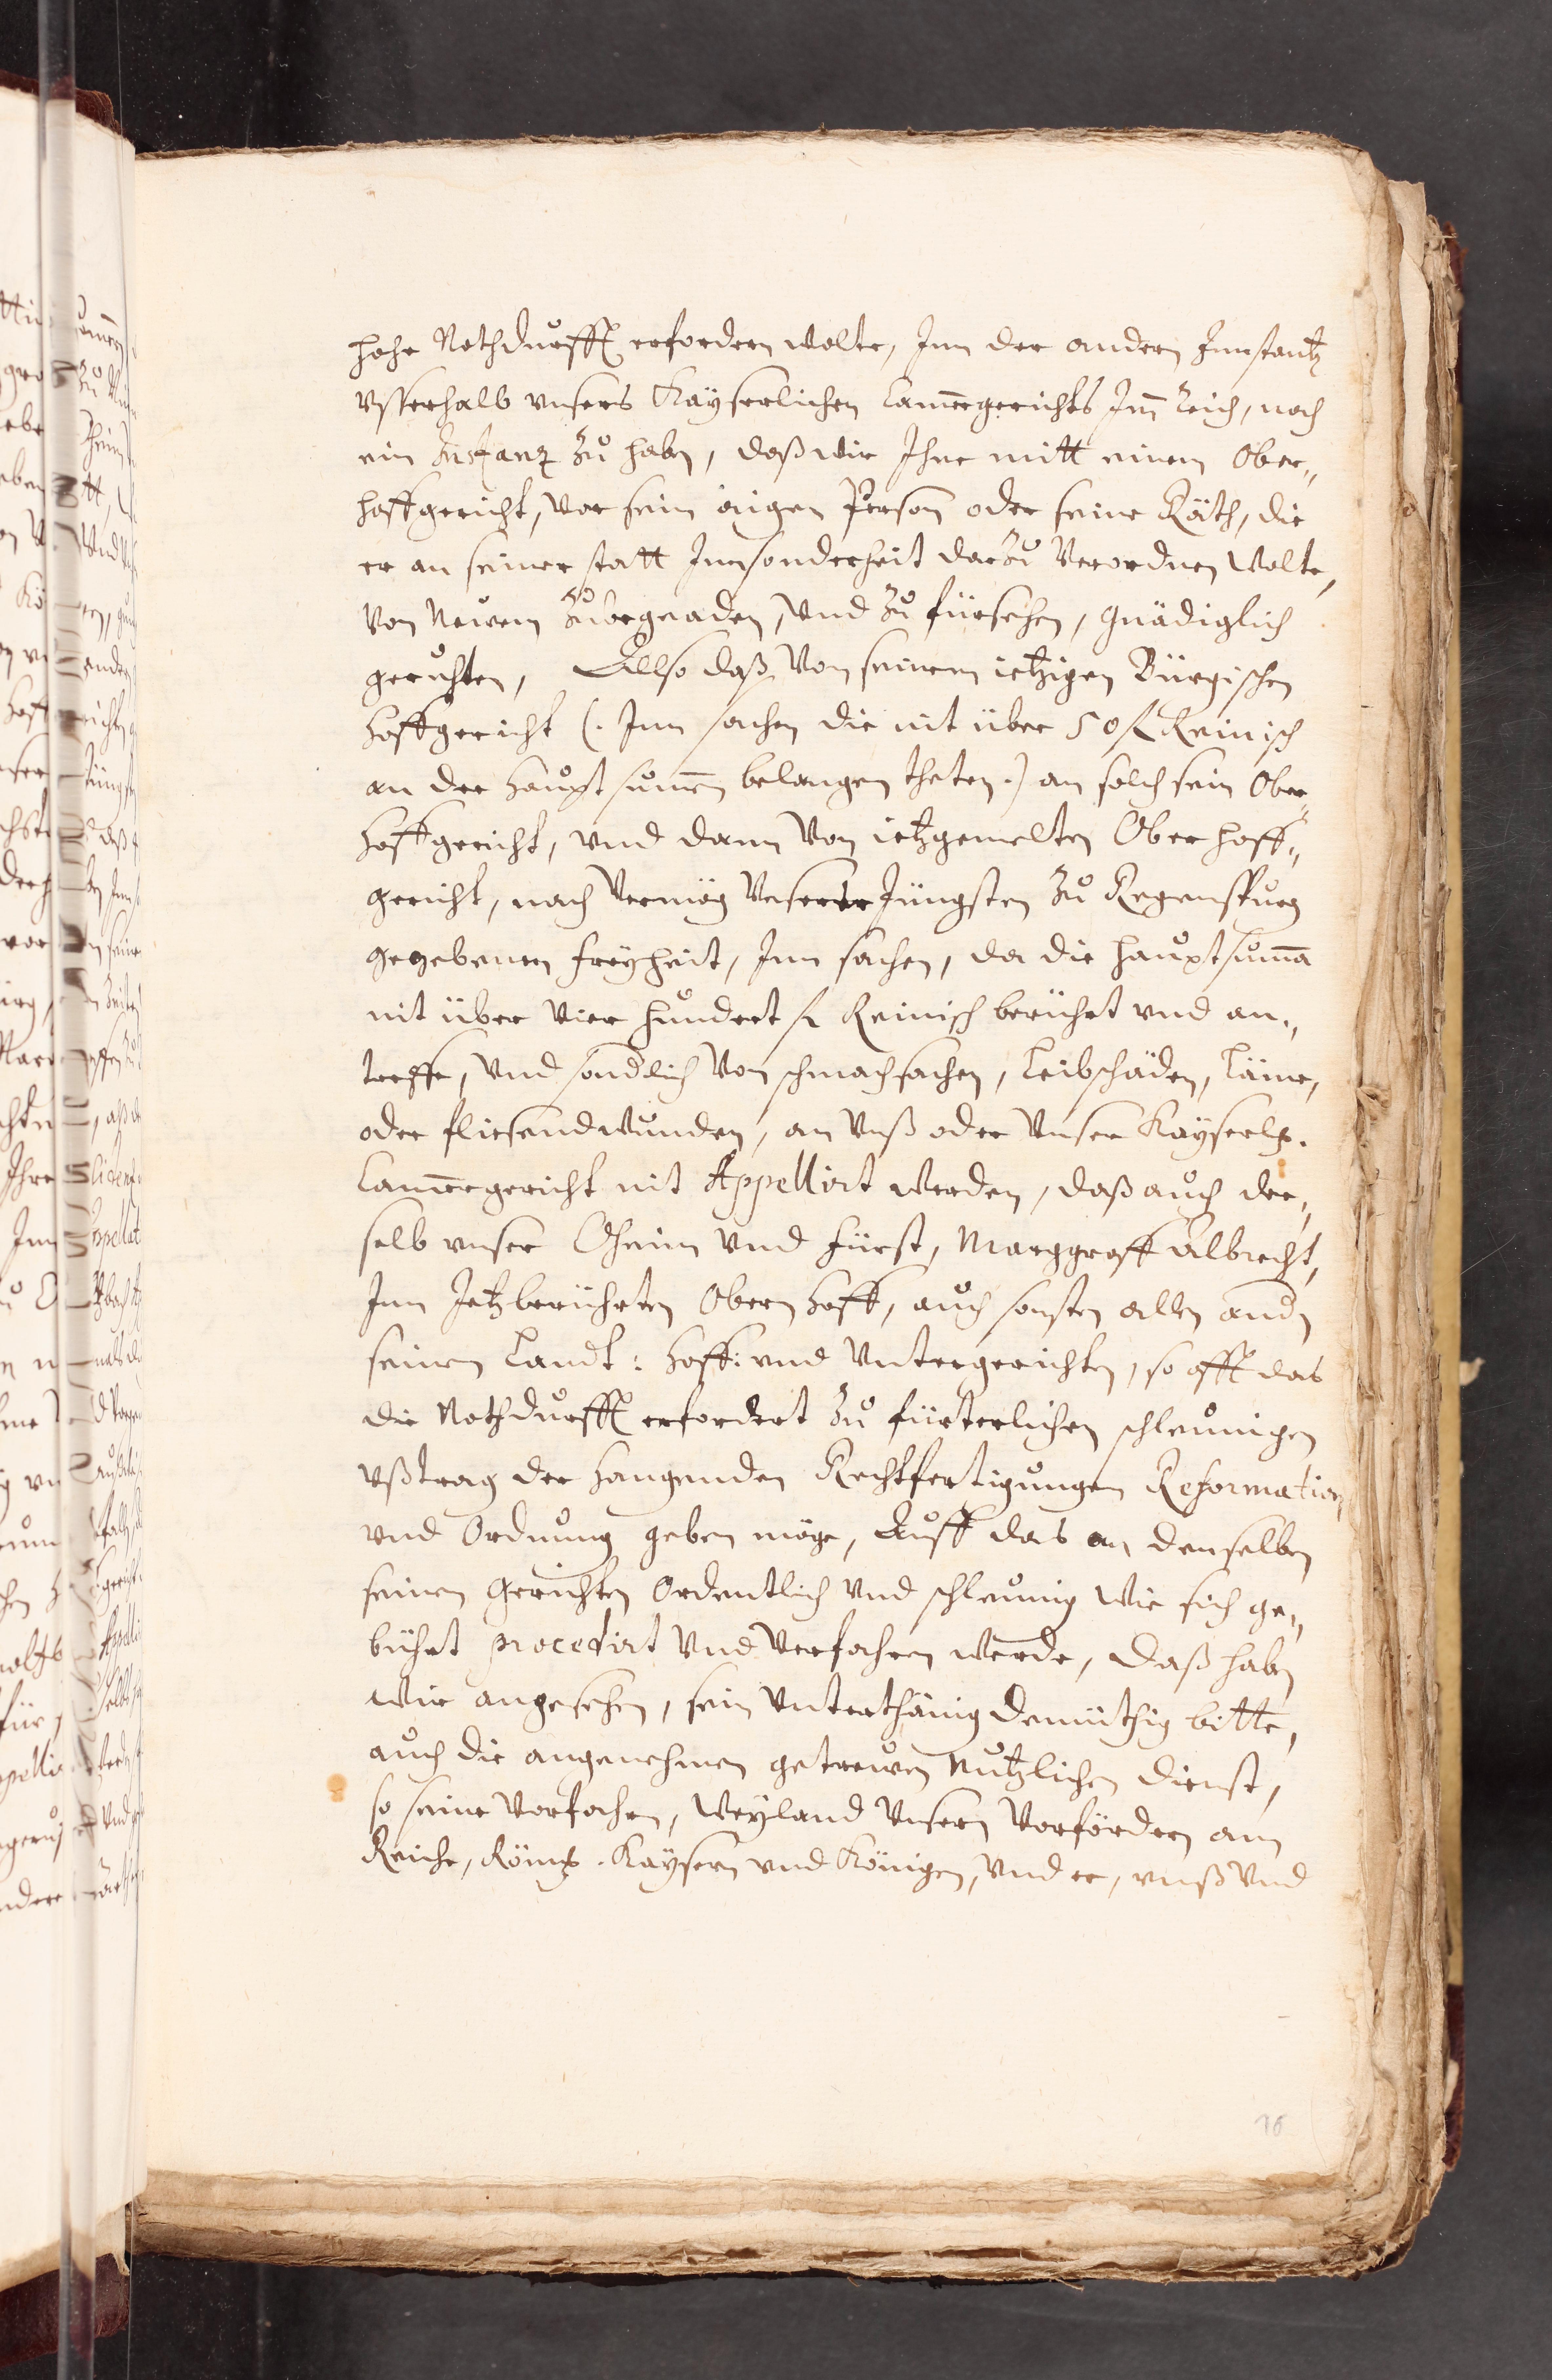 hohe Nothdurfft erfordern wolte, Inn der andern Innstantz
vsserhalb vnsers Kayserlichen Camergerichts Im Reich, noch
ein Instanz zu haben, daß wir Ihne mitt einem Ober„
hoffgericht, vor sein aigen Person oder seine Räth, die
er an seiner statt Innsonderheit darzu verordnen wolte,
von Newem zubegnaden, vnd zu fürsehen, gnädiglich
geruhten, Allso daß von seinem ietzigen Bürgischen
Hoffgericht (. Inn sachen die nit über 50 fl Reinisch
an der Haupt sumen belangen theten .) an solch sein Ober„
Hoffgericht, vnd dann von ietzgemelten Ober hoff„
gericht, nach vermög vnserer Jüngsten zu Regenspurg
gegebenen freyheit, Inn sachen, da die hauptsuma
nit über vier hundert fl Reinisch berührt vnd an„
treffe, vnd sondlich von schmachsachen, Leibschäden, Läme,
oder fliesendwunden, an vnß oder vnser Kayserlh.
Camergericht nit Appellirt werden, daß auch der„
selb vnser Oheim vnd fürst, Marggraff Albrecht,
Inn Jetzberührten Obern Hoff, auch sonsten allen andn
seinen Landt: Hoff: vnd Vntergerichten, so offt das
die Nothdurfft erfordert zu fürterlichen schleunigen
vßtrag der Hangenden Rechtfertigungen Reformation
vnd Ordnung geben möge, Auff das an denselben
seinen Gerichten Ordentlich vnd schleunig wie sich ge„
bührt procedirt vnd verfahren werde, daß haben
wir angesehen, sein vnterthänig demüthig bitte,
auch die angenehmen getrewen nutzlichen dienst,
so seine vorfahrn, weyland vnsern vorfördern am
Reiche, Römh. Kaysern vnd Königen, vnd er, vnß vnd